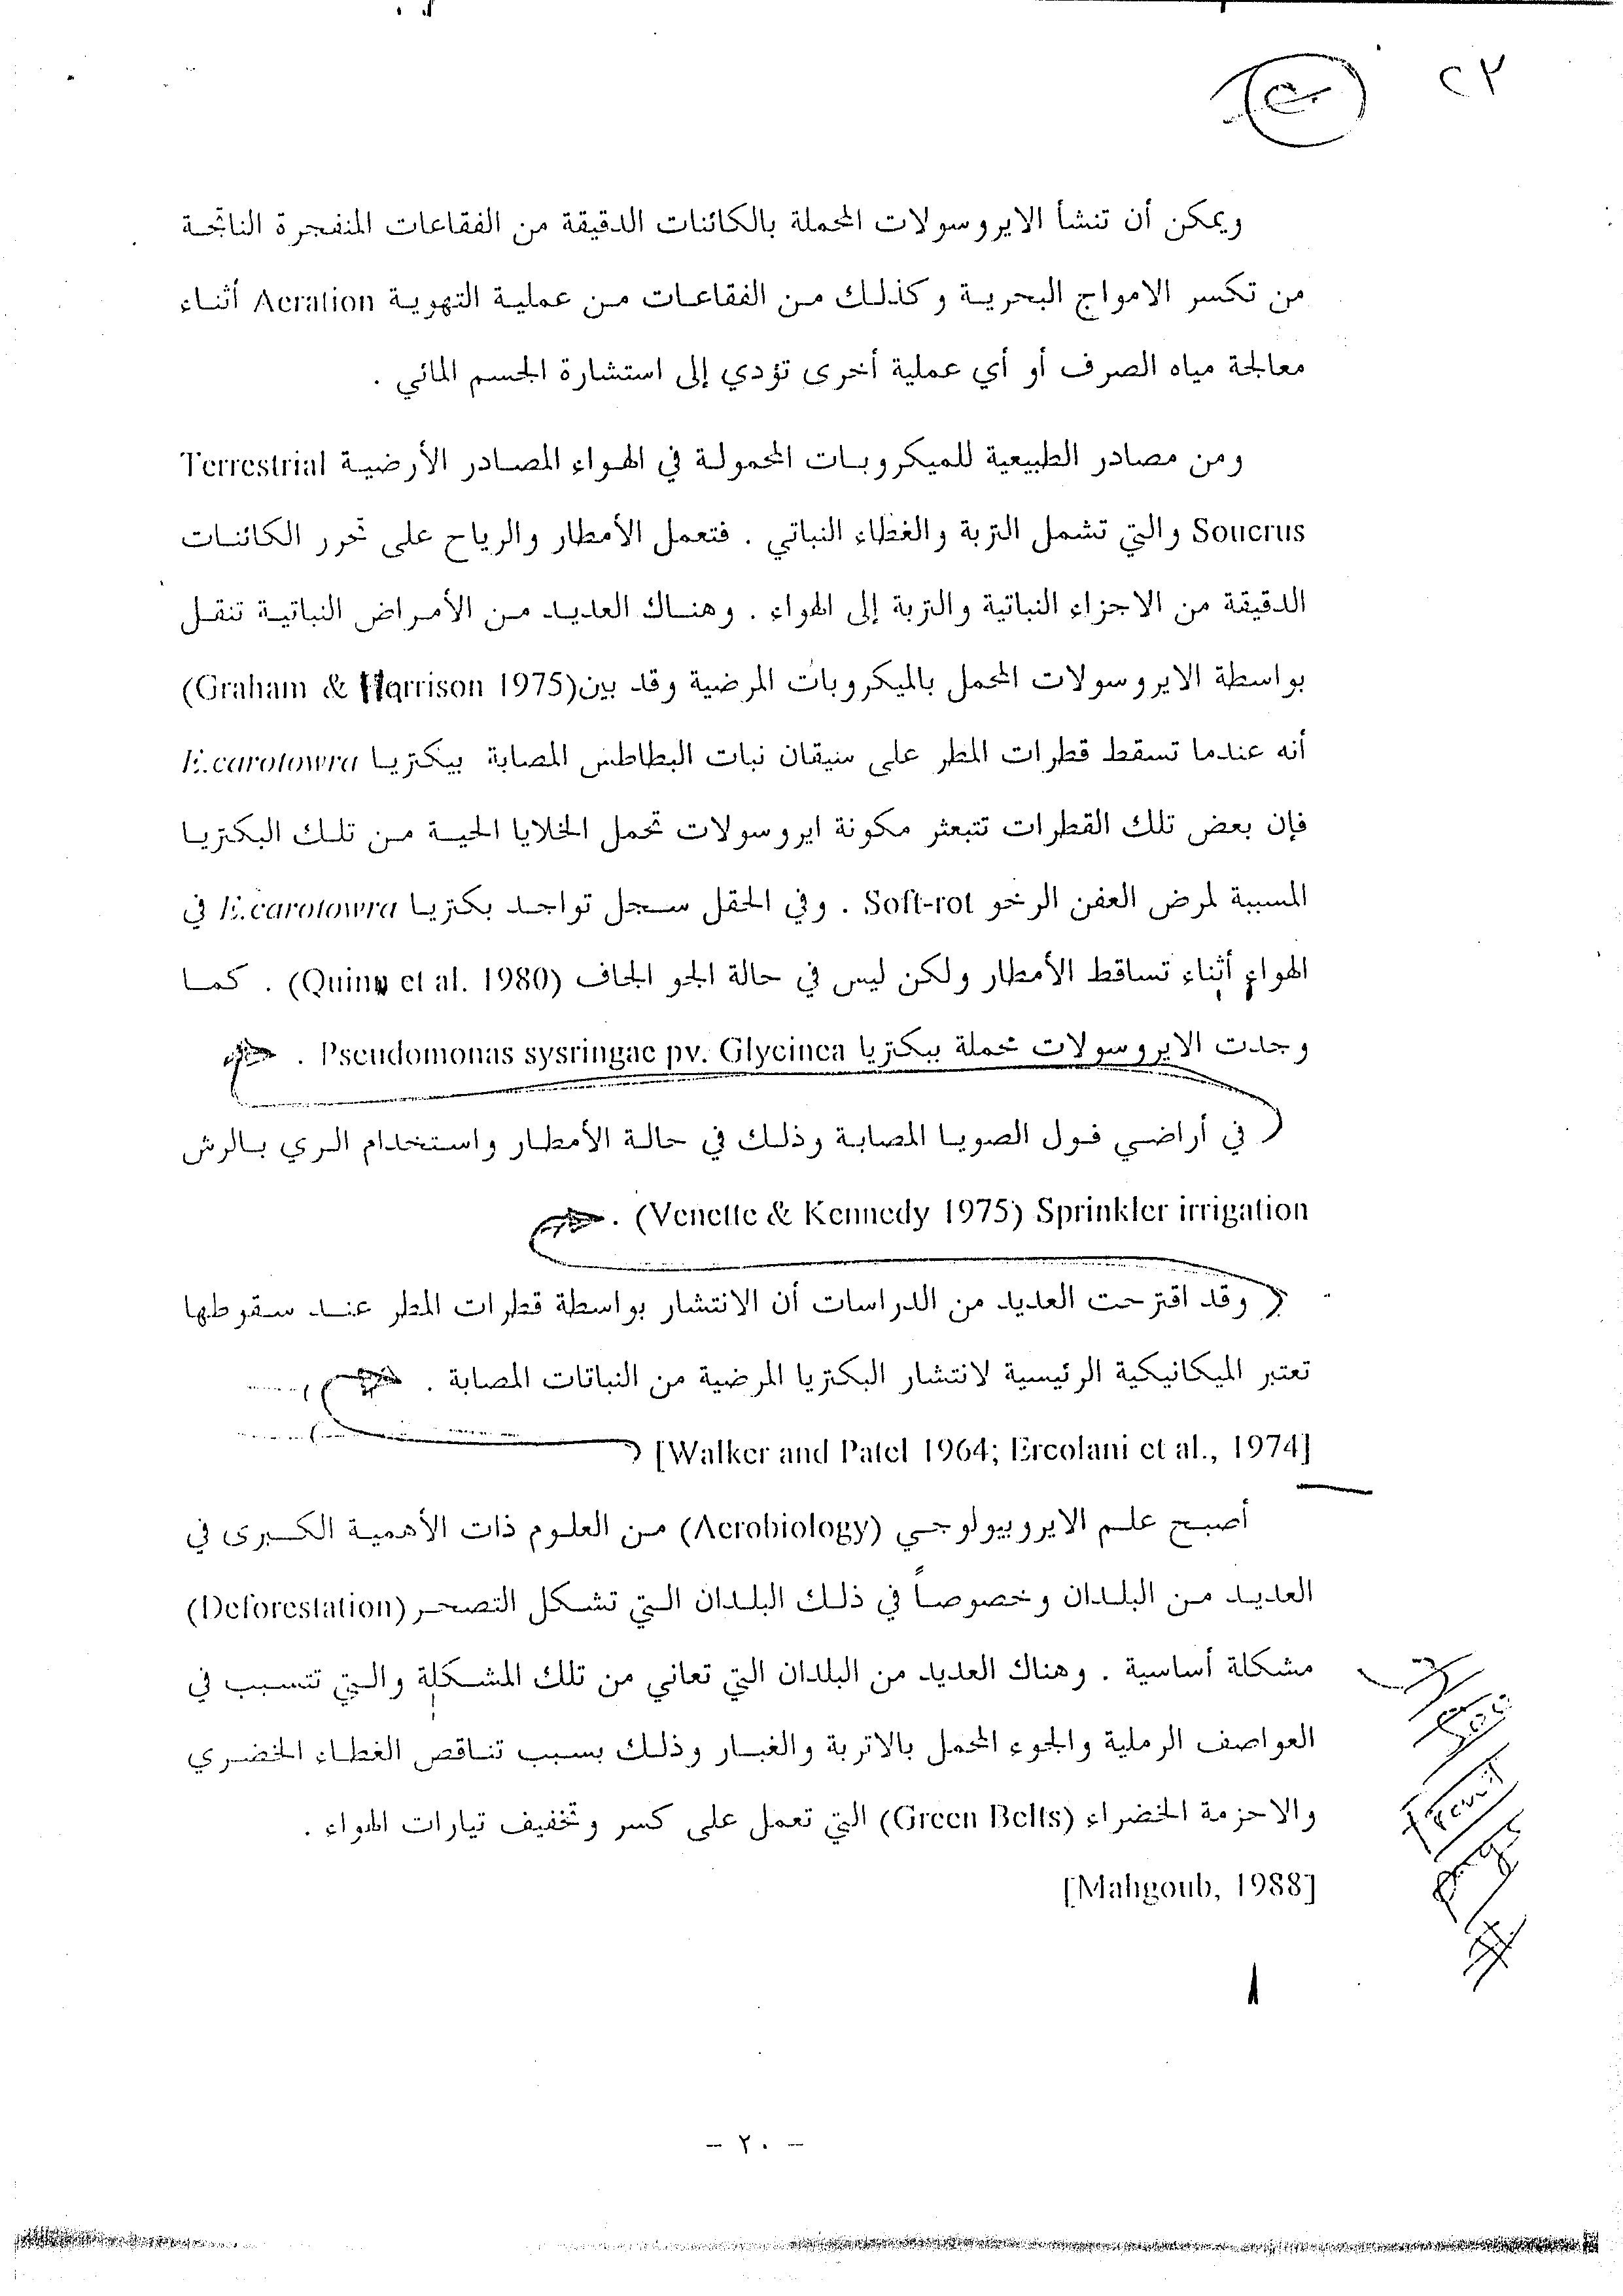 ٢٢
ويمكن أن تنشأ الايروسولات المحملة بالكائنات الدقيقة من الفقاعات المنفجرة الناتجة
من تكسر الامواج البحرية وكذلك من الفقاعات من عملية التهوية Aeration أثناء
معالجة مياه الصرف أو أي عملية أخرى تؤدي إلى استشارة الجسم المائي .
ومن مصادر الطبيعية للميكروبات المحمولة في الهواء المصادر الأرضية Terrestrial
Soucrus والتي تشمل التربة والغطاء النباتي . فتعمل الأمطار والرياح على تحرر الكائنات
الدقيقة من الاجزاء النباتية والتربة إلى الهواء . وهناك العديد من الأمراض النباتية تنقل
بواسطة الايروسولات المحمل بالميكروبات المرضية وقد بين(Graham & Harrison 1975)
أنه عندما تسقط قطرات المطر على سيقان نبات البطاطس المصابة ببكتريا E.carotowra
فإن بعض تلك القطرات تتبعثر مكونة ايروسولات تحمل الخلايا الحية من تلك البكتريا
المسببة لمرض العفن الرخو Soft-rot . وفي الحقل سجل تواجد بكتريا E.carotowra في
الهواء أثناء تساقط الأمطار ولكن ليس في حالة الجو الجاف (Quinn et al. 1980) . كما
وجدت الايروسولات محملة ببكتريا Pseudomonas sysringae pv. Glycinea .
في أراضي فول الصويا المصابة وذلك في حالة الأمطار واستخدام الري بالرش
Sprinkler irrigation (Venette & Kennedy 1975) .
وقد اقترحت العديد من الدراسات أن الانتشار بواسطة قطرات المطر عند سقوطها
تعتبر الميكانيكية الرئيسية لانتشار البكتريا المرضية من النباتات المصابة .
[Walker and Patel 1964; Ercolani et al., 1974]
أصبح علم الايروبيولوجي (Aerobiology) من العلوم ذات الأهمية الكبرى في
العديد من البلدان وخصوصاً في ذلك البلدان التي تشكل التصحر (Deforestation)
مشكلة أساسية . وهناك العديد من البلدان التي تعاني من تلك المشكلة والتي تتسبب في
العواصف الرملية والجوء المحمل بالاتربة والغبار وذلك بسبب تناقص الغطاء الخضري
والاحزمة الخضراء (Green Belts) التي تعمل على كسر وتخفيف تيارات الهواء .
[Mahgoub, 1988]
- ٢٠ -